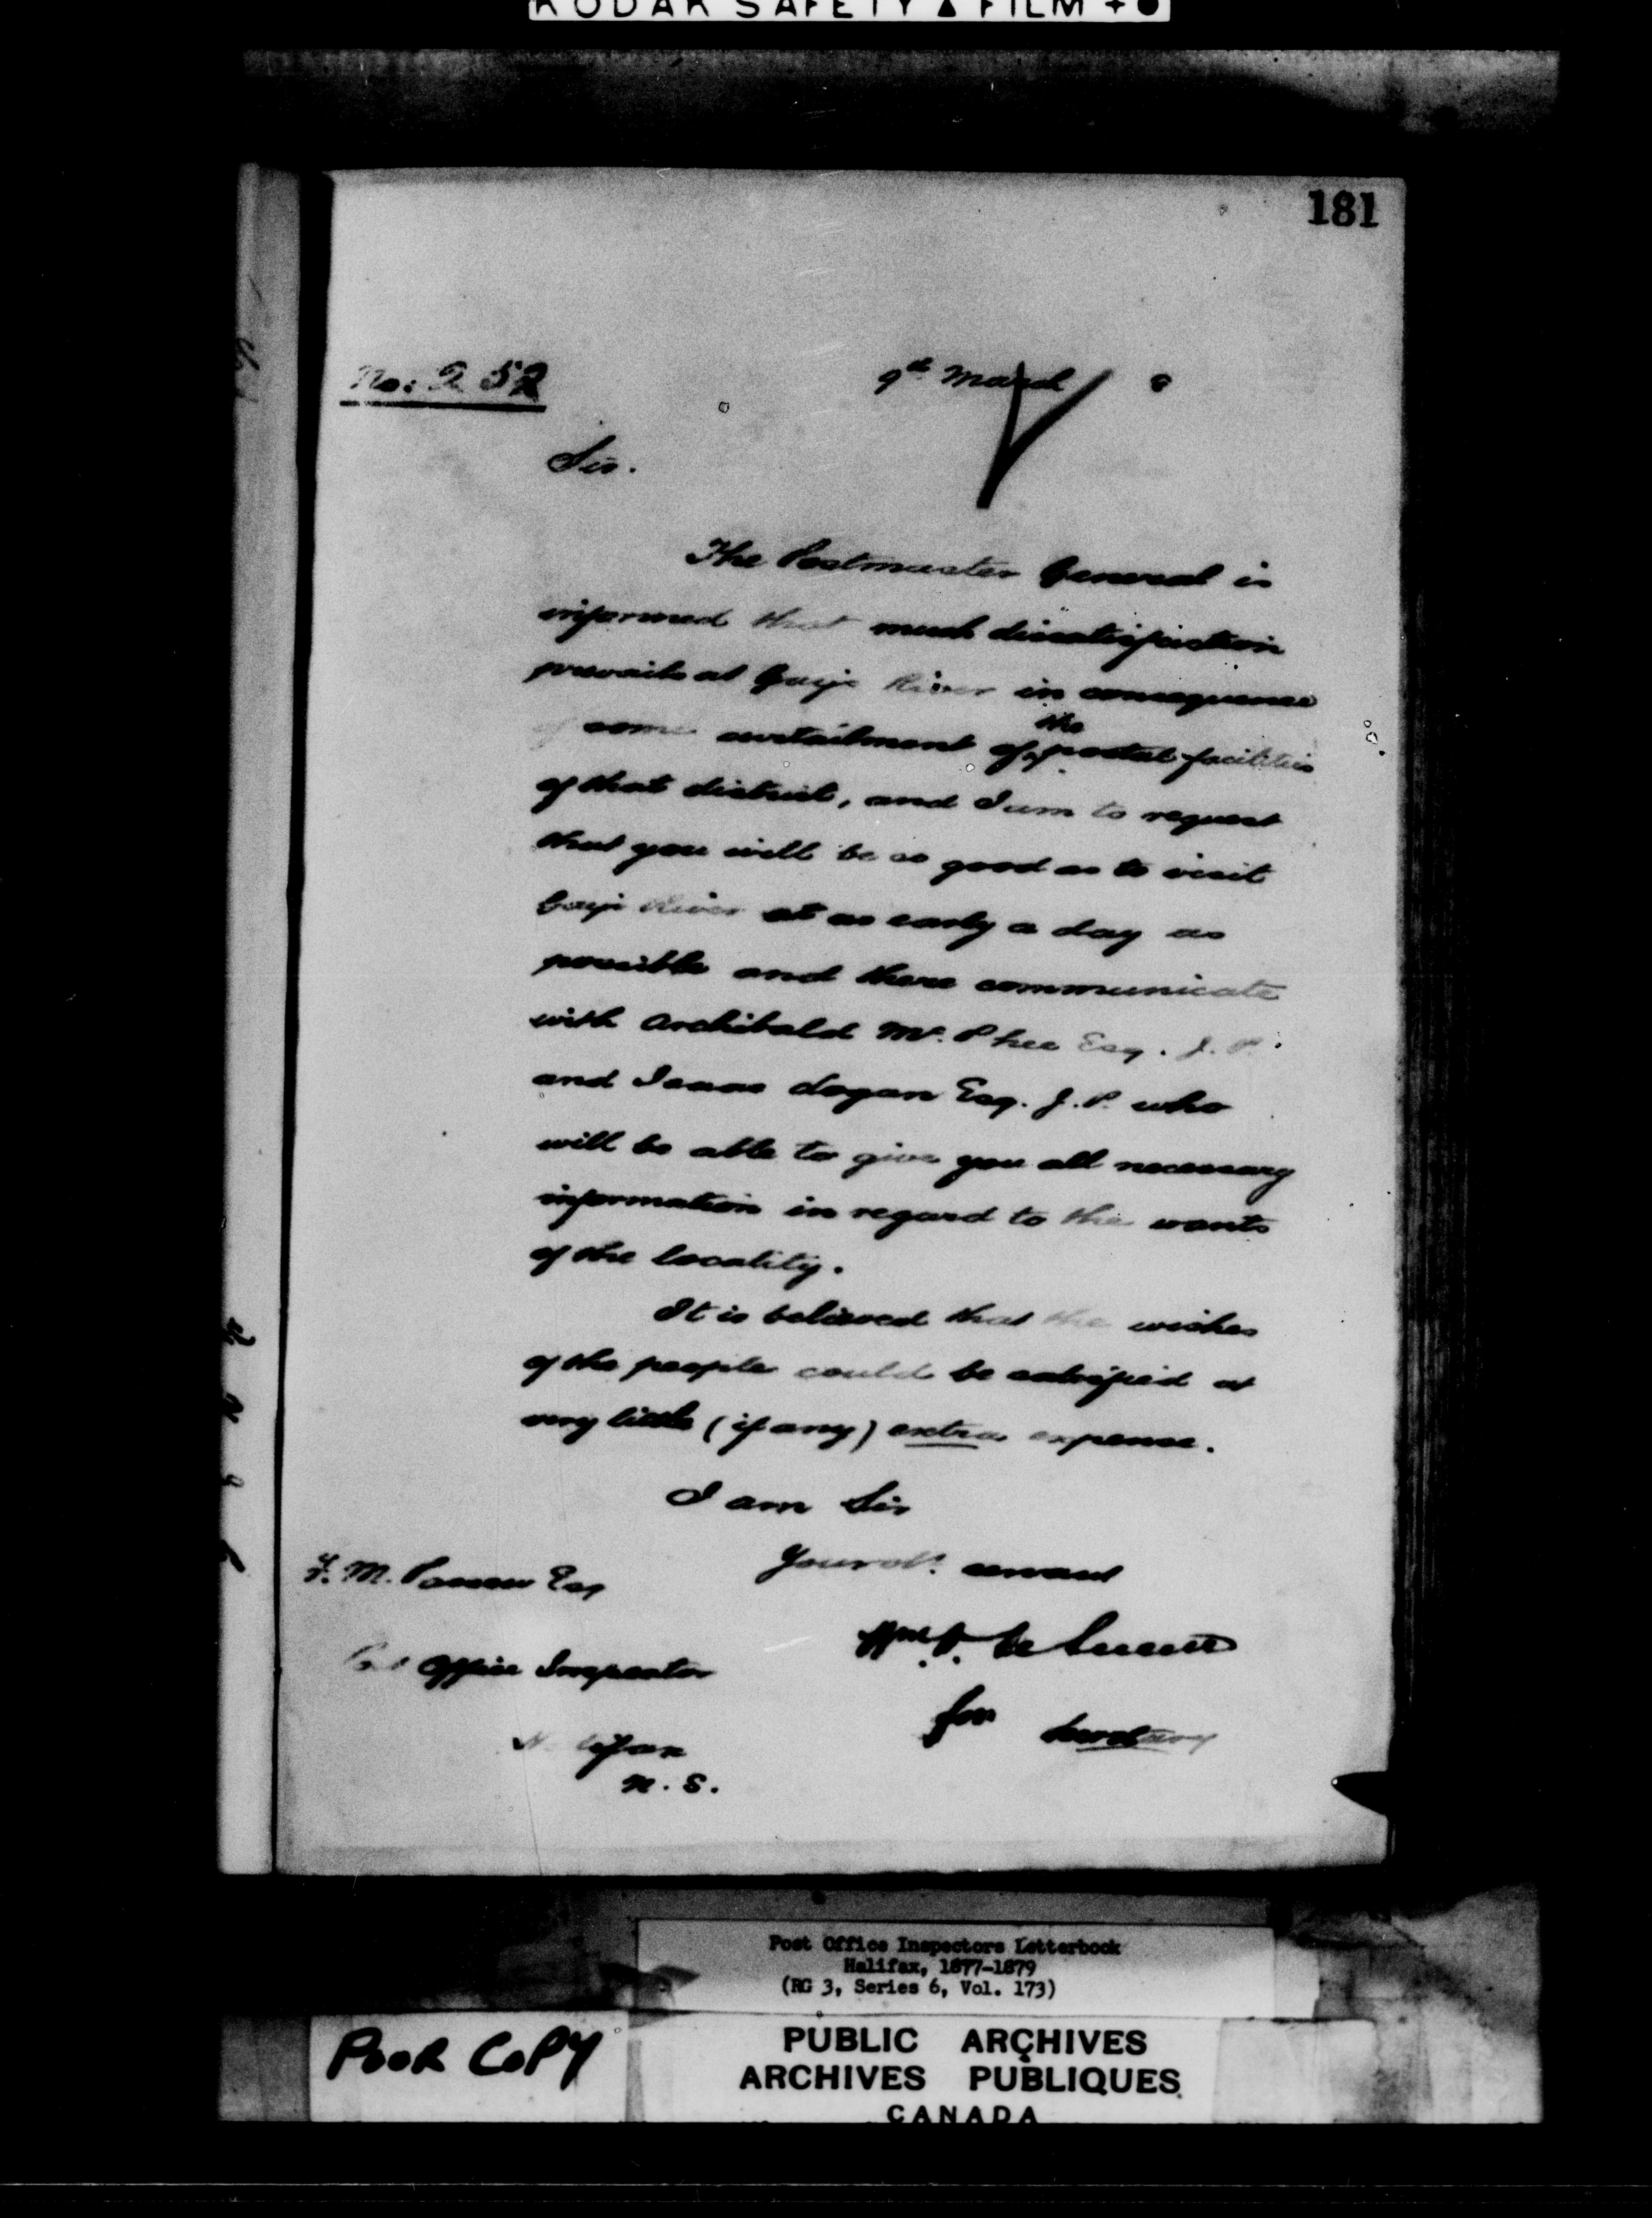 KODAK SAFETY ▲ FILM + ●
181
No: 252
9th March 8
Sir.
The Postmaster General is
informed that much dissatisfaction
prevails at Gay's River in consequence
of some curtailment of the postal facilities
of that district, and I am to request
that you will be so good as to visit
Gay's River at as early a day as
possible and there communicate
with Archibald Mc.Phee Esq. J. P.
and Isaac Logan Esq. J. P. who
will be able to give you all necessary
information in regard to the wants
of the locality.
It is believed that the wishes
of the people could be satisfied at
very little (if any) extra expense.
I am Sir
Your obt. servant
F. M. Passow Esq
Post Office Inspector
for Secretary
Halifax
N. S.
Post Office Inspectors Letterbook
Halifax, 1877-1879
(RG 3, Series 6, Vol. 173)
POOR COPY
PUBLIC ARCHIVES
ARCHIVES PUBLIQUES
CANADA